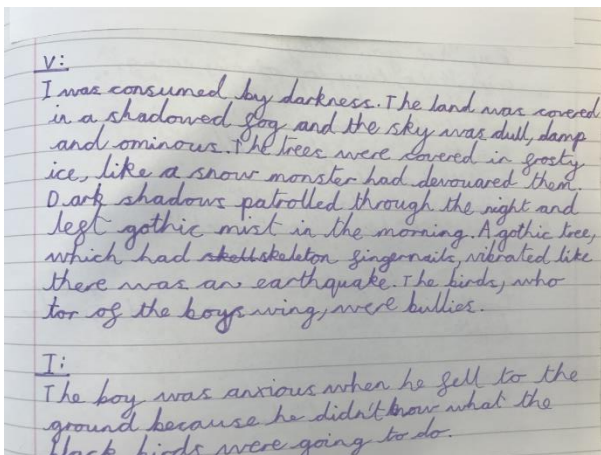 V:
I was consumed by darkness. The land was covered
in a shadowed fog and the sky was dull, damp
and ominous. The trees were covered in frosty
ice, like a snow monster had devouared them.
Dark shadows patrolled through the night and
left gothic mist in the morning. A gothic tree,
which had skell skeleton fingernails, vibrated like
there was an earthquake. The birds, who
tor of the boys wing, were bullies.
I:
The boy was anxious when he fell to the
ground because he didn't know what the
black birds were going to do.